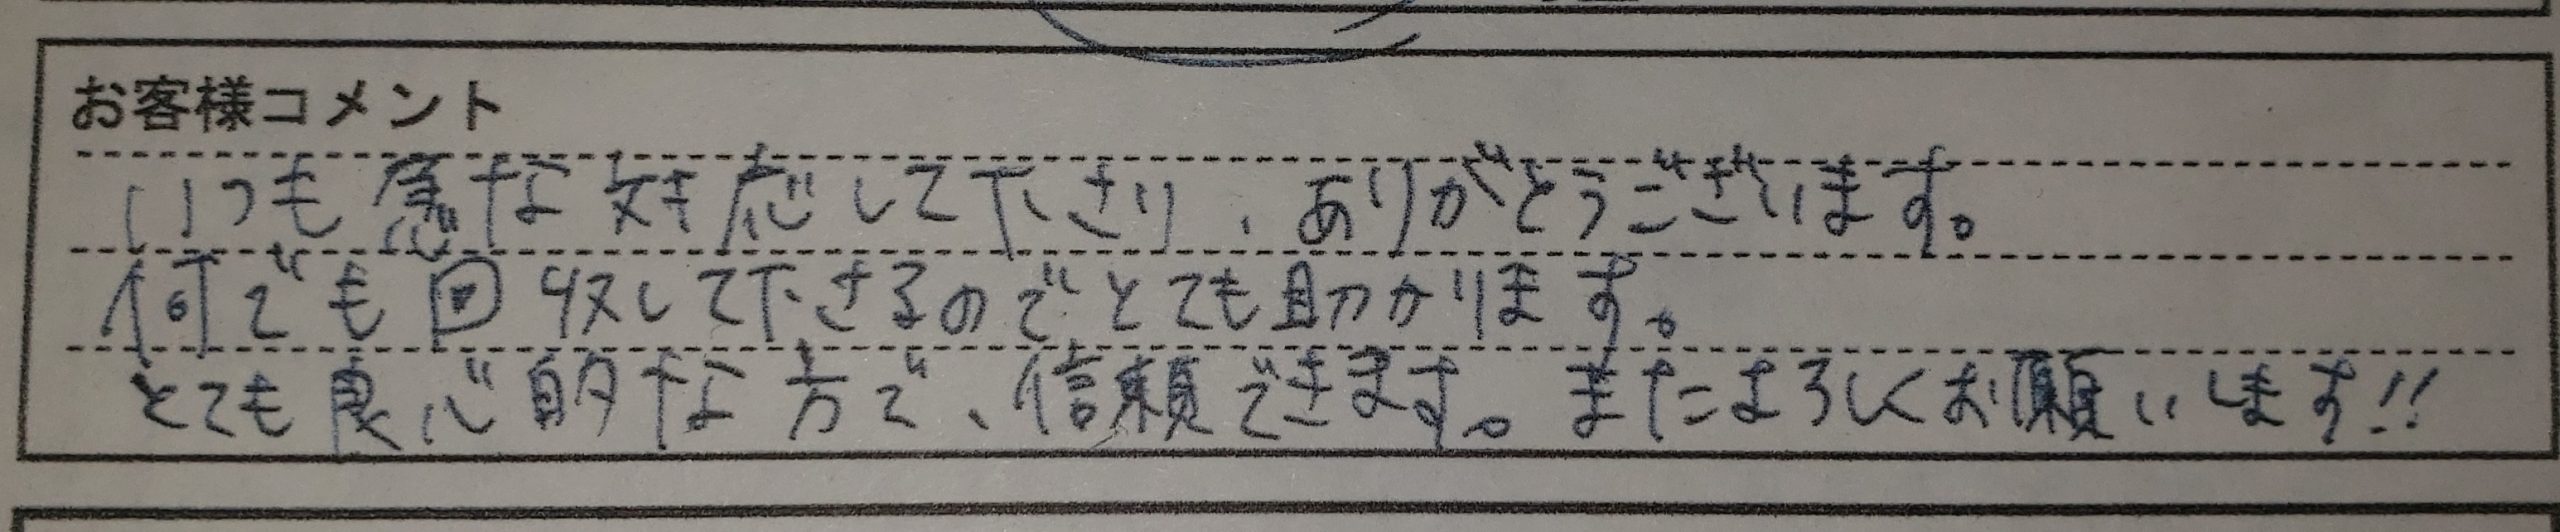 お客様コメント
いつも急な対応して下さり、ありがとうございます。
何でも回収して下さるのでとても助かります。
とても良心的な方で、信頼できます。またよろしくお願いします!!